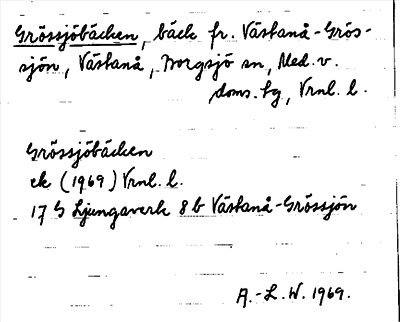 Grössjöbäcken, bäck fr. Västanå-Grös-
sjön, Västanå, Borgsjö sn, Med. v.
doms. hg, Vrnl. l.
Grössjöbäcken
ek (1969) Vrnl. l.
17 G Ljungaverk 8 b Västanå-Grössjön
A.-L. W. 1969.